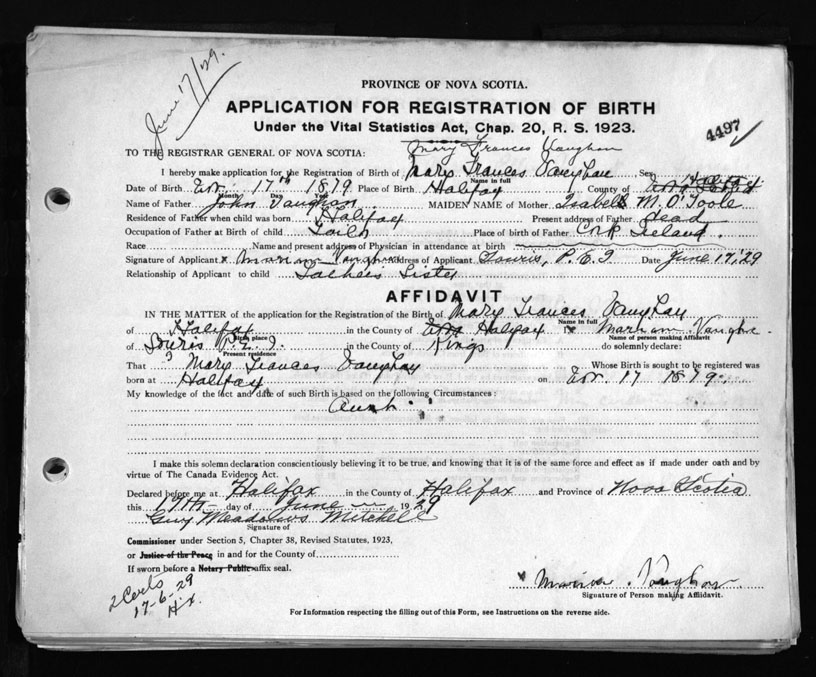 June 17/29.
PROVINCE OF NOVA SCOTIA.
APPLICATION FOR REGISTRATION OF BIRTH
Under the Vital Statistics Act, Chap. 20, R. S. 1923.
4497
Mary Frances Vaughan
TO THE REGISTRAR GENERAL OF NOVA SCOTIA:
I hereby make application for the Registration of Birth of Mary Frances Vaughan Sex
Name in full
Date of Birth 17th 1879 Place of Birth Halifax County of Halifax
Month Day Year
Name of Father John Vaughan MAIDEN NAME of Mother Isabell M. O'Toole
Residence of Father when child was born Halifax Present address of Father dead
Occupation of Father at Birth of child Place of Birth of Father Cork Ireland
Race Name and present address of Physician in attendance at birth
Signature of Applicant x Vaughan Address of Applicant Souris, P.E.I Date June 17, '29
Relationship of Applicant to child Father's Sister
AFFIDAVIT
IN THE MATTER of the application for Registration of the Birth of Mary Frances Vaughan
Name in full
of Halifax in the County of Halifax I Vaughan
Birth place Name of person making Affidavit
of Souris P.E.I. in the County of Kings do solemnly declare:
Present residence
That Mary Frances Vaughan Whose Birth is sought to be registered was
born at Halifax on 17 1879
My knowledge of the fact and date of such Birth is based on the following Circumstances:
Aunt
I make this solemn declaration conscientiously believing it to be true, and knowing that it is of the same force and effect as if made under oath and by
virtue of The Canada Evidence Act.
Declared before me at Halifax in the County of Halifax and Province of Nova Scotia
this 17th day of June 1929
Guy Meadows Mitchell
Signature of
Commissioner under Section 5, Chapter 38, Revised Statutes, 1923,
or Justice of the Peace in and for the County of
If sworn before a Notary Public affix seal.
Vaughan
Signature of Person making Affidavit.
2 Certs
17-6-29
Hx.
For Information respecting the filling out of this Form, see Instructions on the reverse side.